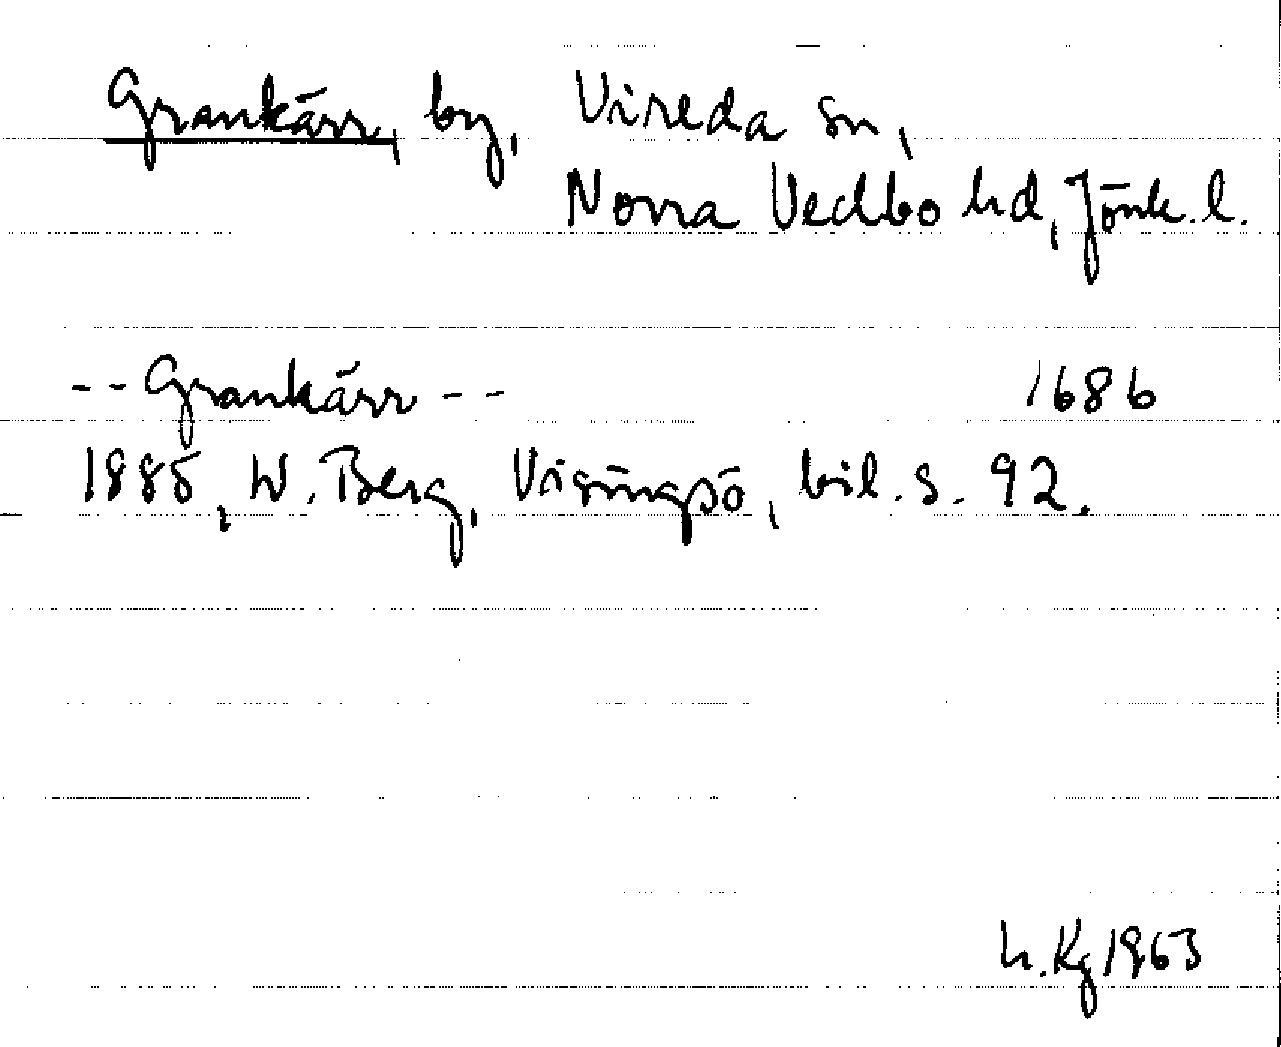 Grankärr, by, Vireda sn,
Norra Vedbo hd, Jönk. l.
-- Grankärr -- 1686
1885, W. Berg, Visingsö, bil. s. 92.
h. Kg 1963